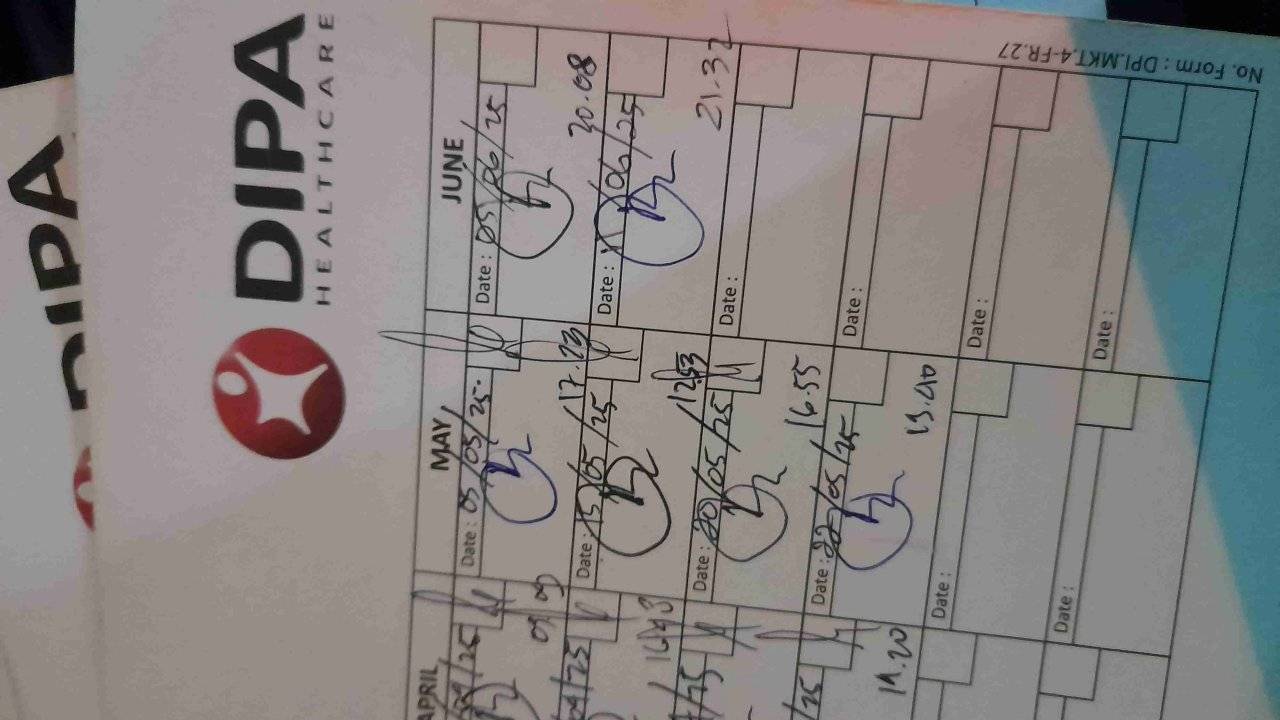 No. Form : DPI.MKT.4-FR.27
DIPA
HEALTHCARE
DIPA
APRIL
/25
09 09
04/25
16.43
/25
/25
19.20
MAY
Date : 05/05/25.
17.23
Date : 15/05/25
12.53
Date : 20/05/25
16.55
Date : 22/05/25
Date :
Date :
JUNE
Date : 05/06/25
20.08
Date : 11/06/25
21.32
Date :
Date :
Date :
Date :